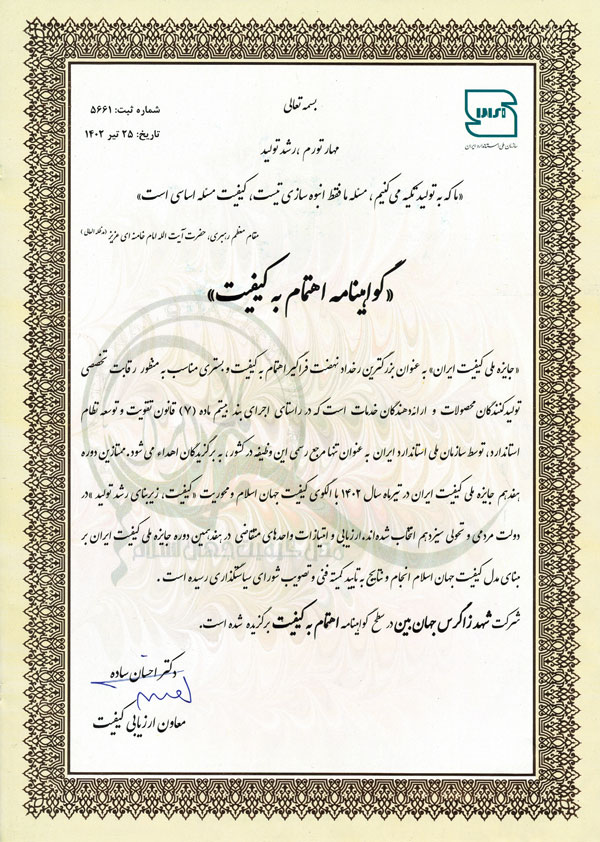 بسمه تعالی
شماره ثبت: ۵۶۶۱
تاریخ: ۲۵ تیر ۱۴۰۲
سازمان ملی استاندارد ایران
مهار تورم، رشد تولید
«ما که به تولید تکیه می کنیم، مسئله ما فقط انبوه سازی نیست، کیفیت مسئله اساسی است»
مقام معظم رهبری، حضرت آیت الله امام خامنه ای عزیز (مدظله العالی)
«گواهینامه اهتمام به کیفیت»
«جایزه ملی کیفیت ایران» به عنوان بزرگترین رخداد نهضت فراگیر اهتمام به کیفیت و بستری مناسب به منظور رقابت تخصصی
تولیدکنندگان محصولات و ارائه دهندگان خدمات است که در راستای اجرای بند بیتم ماده (۷) قانون تقویت و توسعه نظام
استاندارد، توسط سازمان ملی استاندارد ایران به عنوان تنها مرجع رسمی این وظیفه در کشور، به برگزیدگان اهداء می شود. ممتازین دوره
هفدهم جایزه ملی کیفیت ایران در تیرماه سال ۱۴۰۲ با الگوی کیفیت جهان اسلام و محوریت «کیفیت، زیربنای رشد تولید» در
دولت مردمی و تحولی سیزدهم انتخاب شده اند، ارزیابی و امتیازات واحدهای متقاضی در هفدهمین دوره جایزه ملی کیفیت ایران بر
مبنای مدل کیفیت جهان اسلام انجام و نتایج به تایید کمیته فنی و تصویب شورای سیاستگذاری رسیده است.
شرکت شهد زاگرس جهان بین در سطح گواهینامه اهتمام به کیفیت برگزیده شده است.
دکتر احسان ساده
معاون ارزیابی کیفیت
مدل کیفیت جهان اسلام